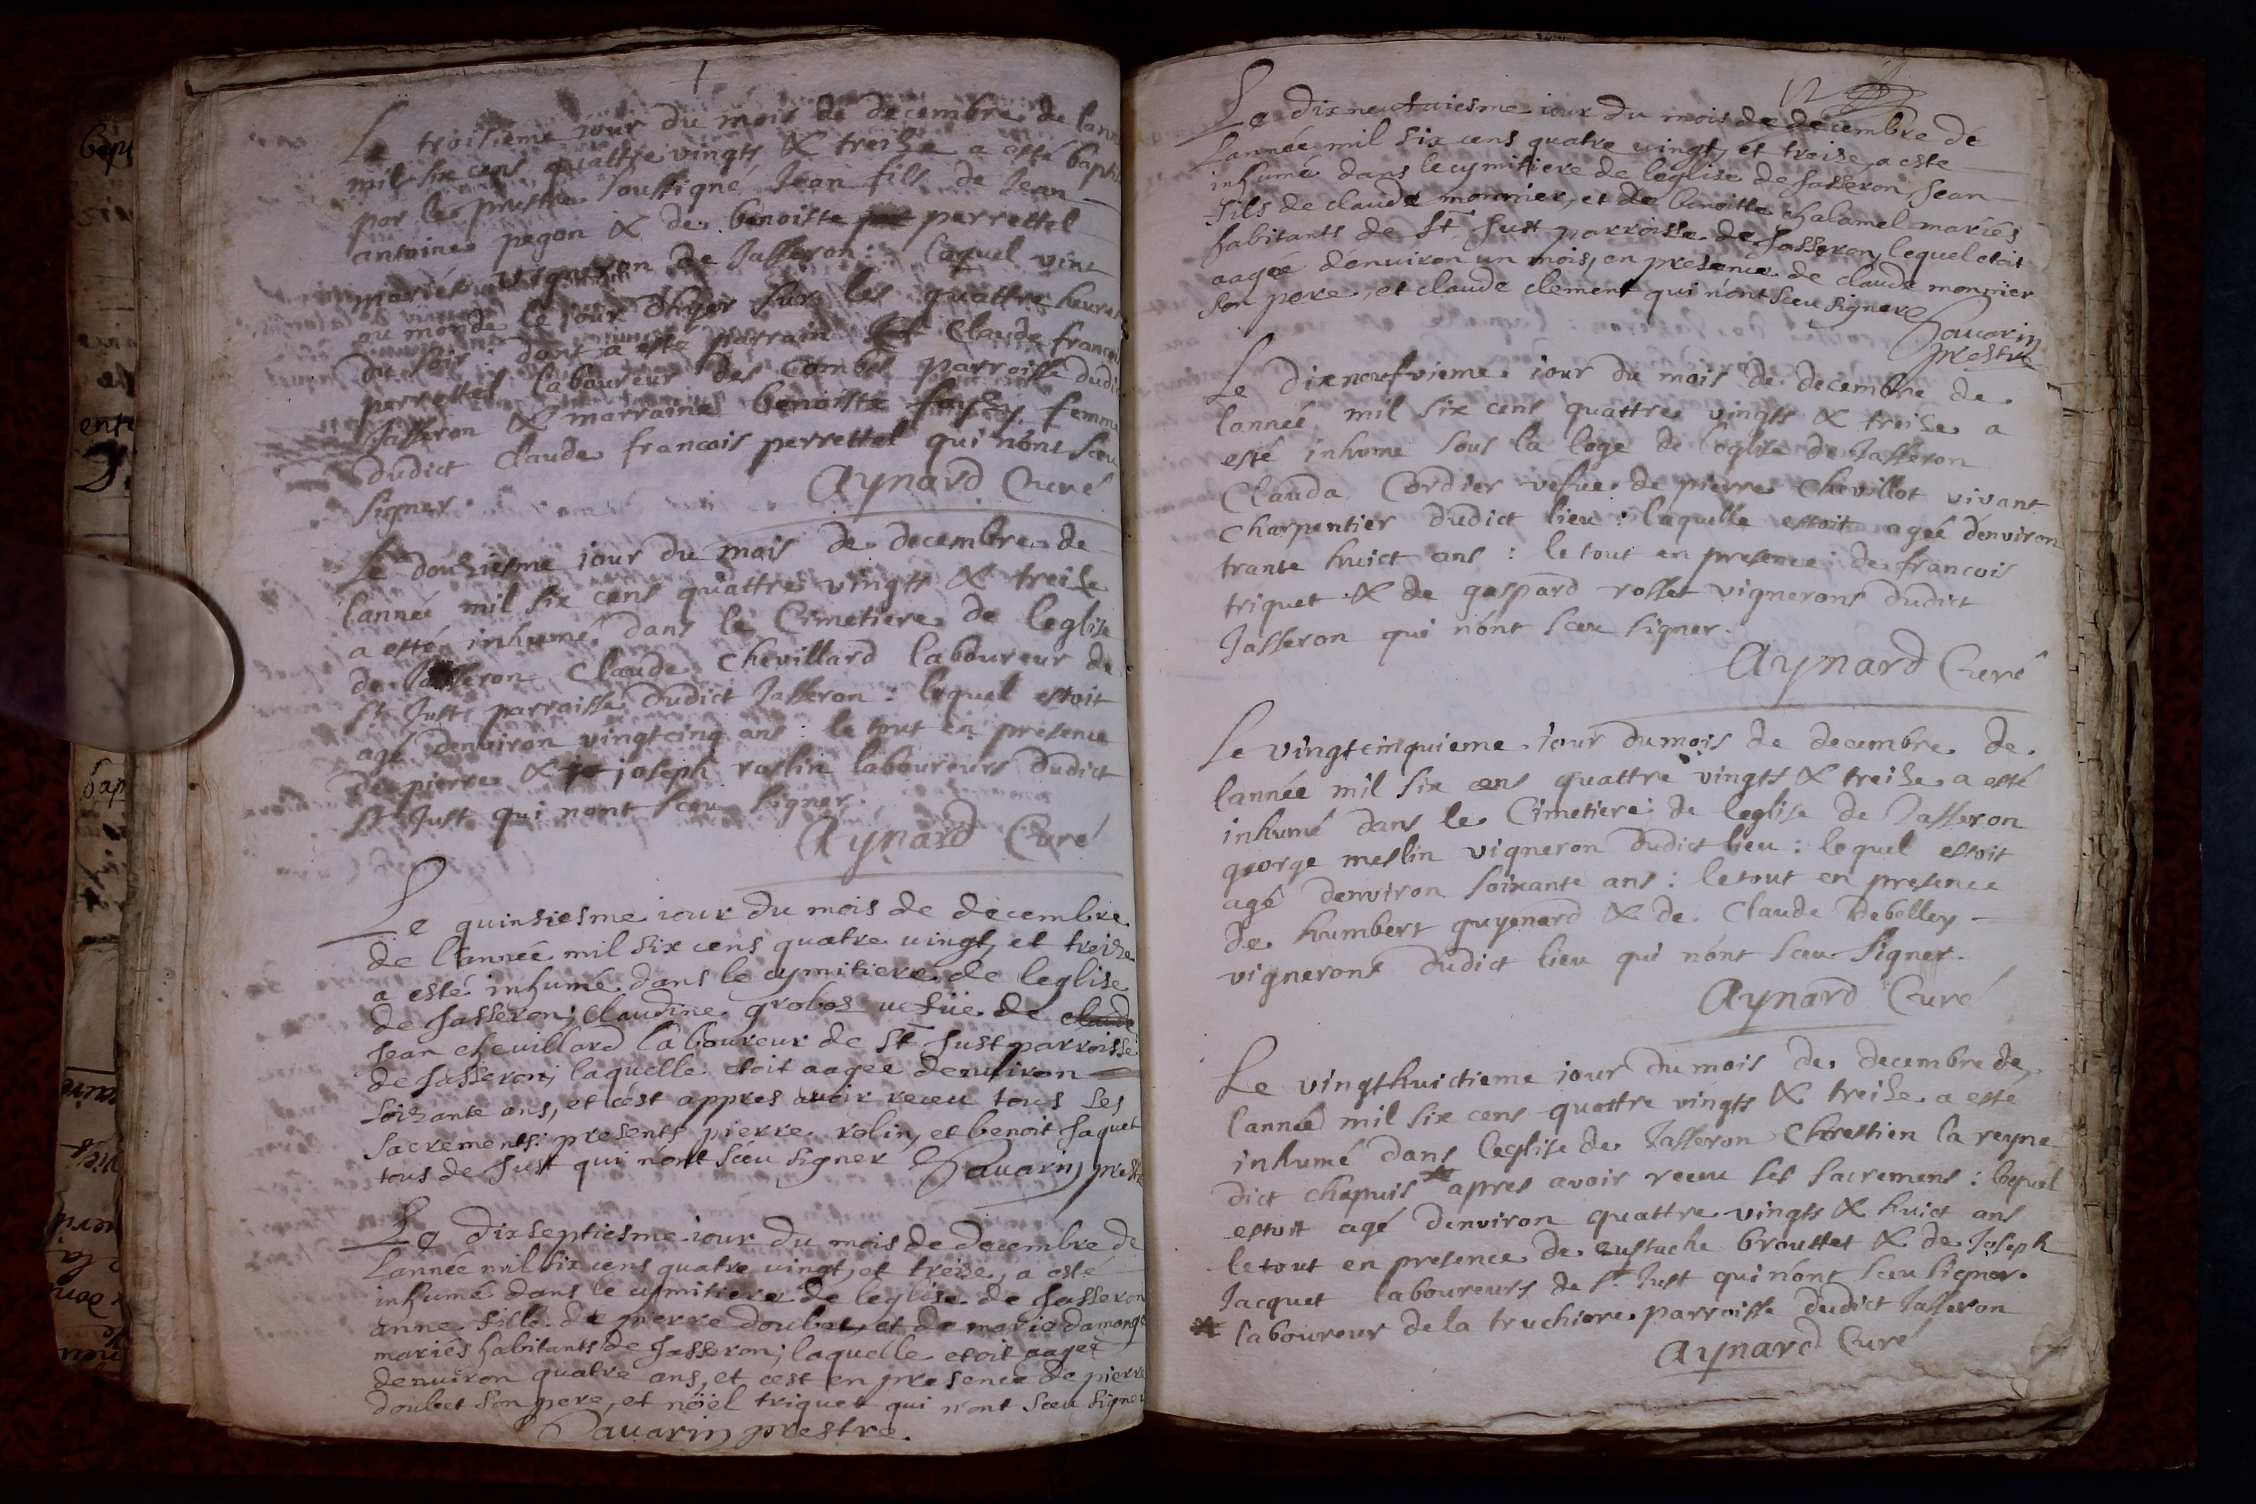 Le troisieme jour du mois de decembre de lann
mil six cens quattre vingts & treize a esté baptis
par les prestre soussigné Jean fils de Jean
antoine pegon & de benoiste perrettel
mariés vigneron de Jasseron : lequel vint
au monde le jour dhyer sur les quattre heures
du soir : dont a esté parrain Claude francoi
perrettel laboureur des Combes parroisse dudi
Jasseron & marraine benoiste femme
dudict Claude francois perrettel qui n'ont sceu
signer.
Aynard Curé
Le douziesme jour du mois de decembre de
lannée mil six cens quattre vingts & treize
a esté inhumé dans le Cimetiere de leglise
de Jasseron Claude Chevillard laboureur de
St Just parroisse dudict Jasseron : lequel estoit
agé denviron vingtcinq ans : le tout en presence
de pierre & joseph roslin laboureurs dudict
St Just qui nont sceu signer.
Aynard Curé
Le quinsiesme iour du mois de decembre
de l'année mil six cens quatre uingt, et treize
a esté inhumé dans le cymitiere de leglise
de Jasseron, Claudine grobos uefüe de claude
Jean cheuillard laboureur de St Just parroisse
de Jasseron, laquelle etoit aagee denuiron
soizante ans, et c'est appres auoir receu tous ses
sacrements presents pierre rolin, et benoit Jaquet
tous de Just qui n'ont sceu signer Sauarin prestre
Le dixseptiesme iour du mois de decembre de
l'année mil six cens quatre uingt, et treize, a esté
inhumé dans le cymitiere de leglise de Jasseron
anne fille de pierre doubet, et de marie damonge
mariés habitants de Jasseron; laquelle etoit aagee
denuiron quatre ans, et cest en presence de pierre
doubet son pere, et nöel triquet qui n'ont sceu signer
Sauarin prestre.
12
Le dixneufuiesme iour du mois de decembre de
l'année mil six cens quatre uingt, et treize, a este
inhumé dans le cymitiere de leglise de Jasseron, Jean
fils de claude monnier, et de benoitte chalamel mariés
habitants de St Just parroisse de Jasseron, lequel etoit
aagée denuiron un mois, en presence de claude monnier
son pere, et claude clement qui n'ont sceu signer
Sauarin
prestre
Le dixneufvieme jour du mois de decembre de
lannée mil six cens quattre vingts & treize a
esté inhume sous la loge de leglise de Jasseron
Clauda Cordier vefue de pierre Chevillot vivant
Charpentier dudict lieu : laquelle estoit agée denviron
trante huict ans : le tout en presence de francois
triquet & de gaspard rosset vignerons dudict
Jasseron qui n'ont sceu signer.
Aynard Curé
Le vingtcinquieme jour du mois de decembre de
lannée mil six cens quattre vingts & treize a esté
inhumé dans le Cimetiere de leglise de Jasseron
george meslin vigneron dudict lieu : lequel estoit
agé denviron soixante ans : le tout en presence
de humbert guyenard & de Claude Debelley
vignerons dudict lieu qui n'ont sceu signer.
Aynard Curé
Le vingthuictieme jour du mois de decembre de
lannée mil six cens quattre vingts & treize a esté
inhumé dans leglise de Jasseron Chrestien la reyne
dict chapuis * apres avoir receu ses sacremens : lequel
estoit agé denviron quattre vingts & huict ans
le tout en presence de eustache brouttet & de Joseph
Jacquet laboureurs de St Just qui n'ont sceu signer.
* laboureur de la truchiere parroisse dudict Jasseron
Aynard Curé